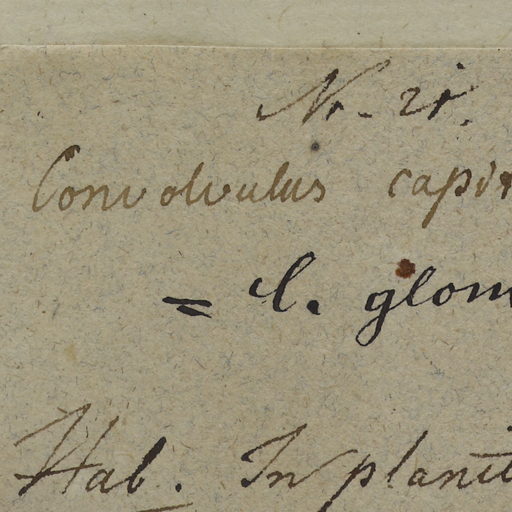 Nr. 21.
Convolvulus capit
= C. glom
Hab. In planit